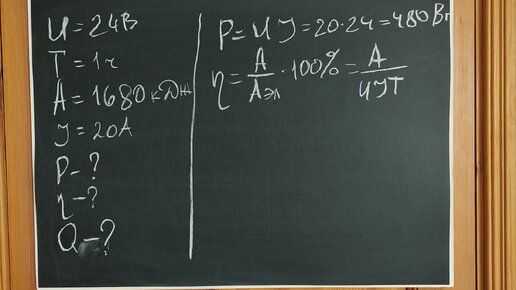 U = 24В
T = 1ч
A = 1680 кДж
J = 20А
P - ?
η - ?
Q - ?
P = U J = 20·24 = 480 Вт
η = A/Aэл · 100% = A/UJT